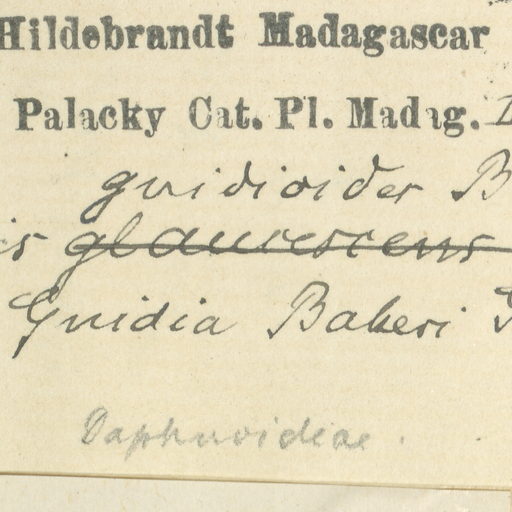 Hildebrandt Madagascar
Palacky Cat. Pl. Madag.
gnidioides B
is glaucescens
Gnidia Bakeri
Daphnoideae.